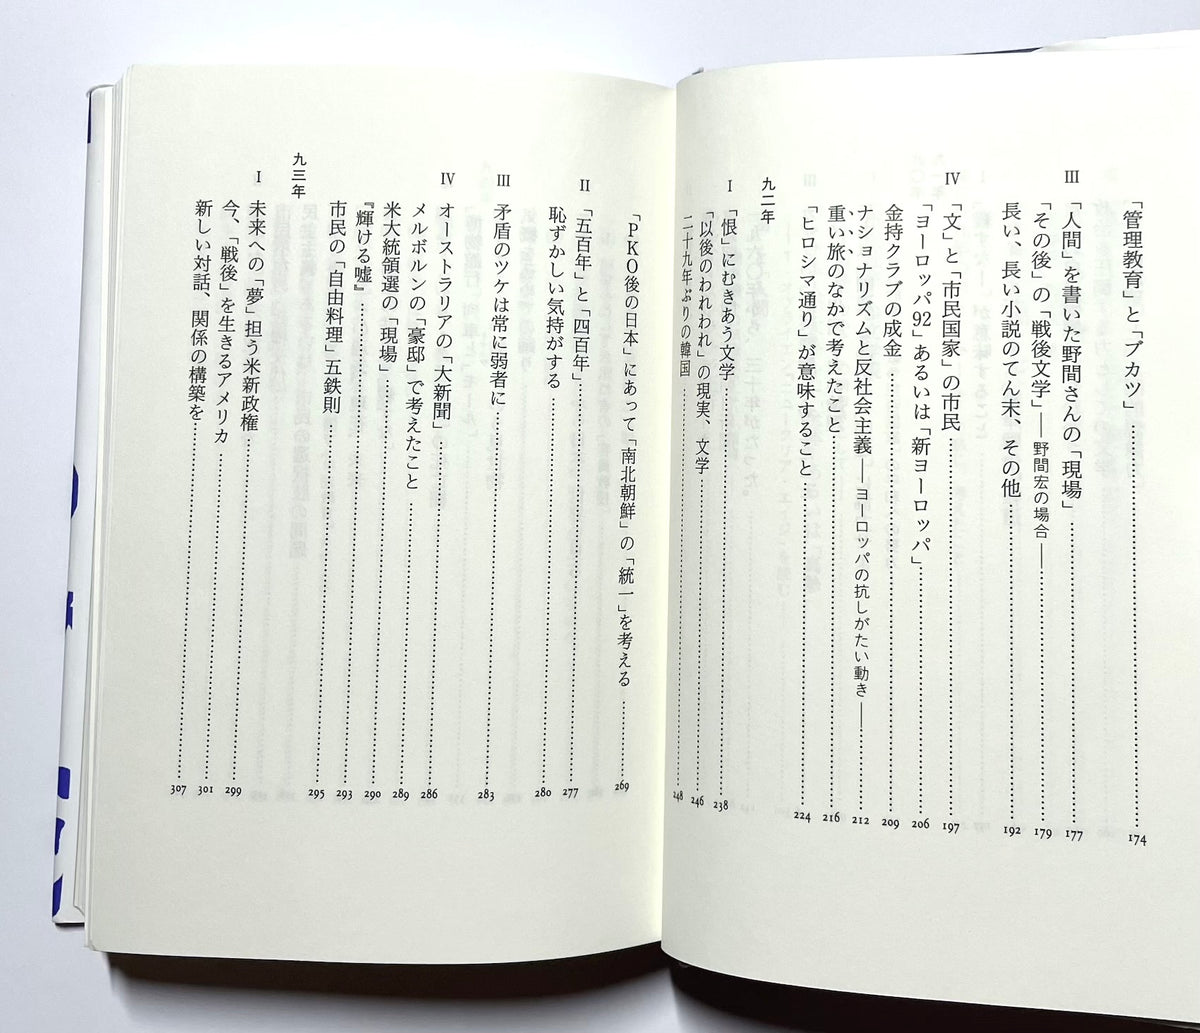 「管理教育」と「ブカツ」……174
Ⅲ
「人間」を書いた野間さんの「現場」……177
「その後」の「戦後文学」——野間宏の場合——……179
長い、長い小説のてん末、その他……192
Ⅳ
「文」と「市民国家」の市民……197
「ヨーロッパ92」あるいは「新ヨーロッパ」……206
金持クラブの成金……209
ナショナリズムと反社会主義——ヨーロッパの抗しがたい動き——……212
重い旅のなかで考えたこと……216
「ヒロシマ通り」が意味すること……224
九二年
Ⅰ
「恨」にむきあう文学……238
「以後のわれわれ」の現実、文学……246
二十九年ぶりの韓国……248
「PKO後の日本」にあって「南北朝鮮」の「統一」を考える……269
Ⅱ
「五百年」と「四百年」……277
恥ずかしい気持がする……280
Ⅲ
矛盾のツケは常に弱者に……283
Ⅳ
オーストラリアの「大新聞」……286
メルボルンの「豪邸」で考えたこと……289
米大統領選の「現場」……290
『輝ける嘘』……293
市民の「自由料理」五鉄則……295
九三年
Ⅰ
未来への「夢」担う米新政権……299
今、「戦後」を生きるアメリカ……301
新しい対話、関係の構築を……307